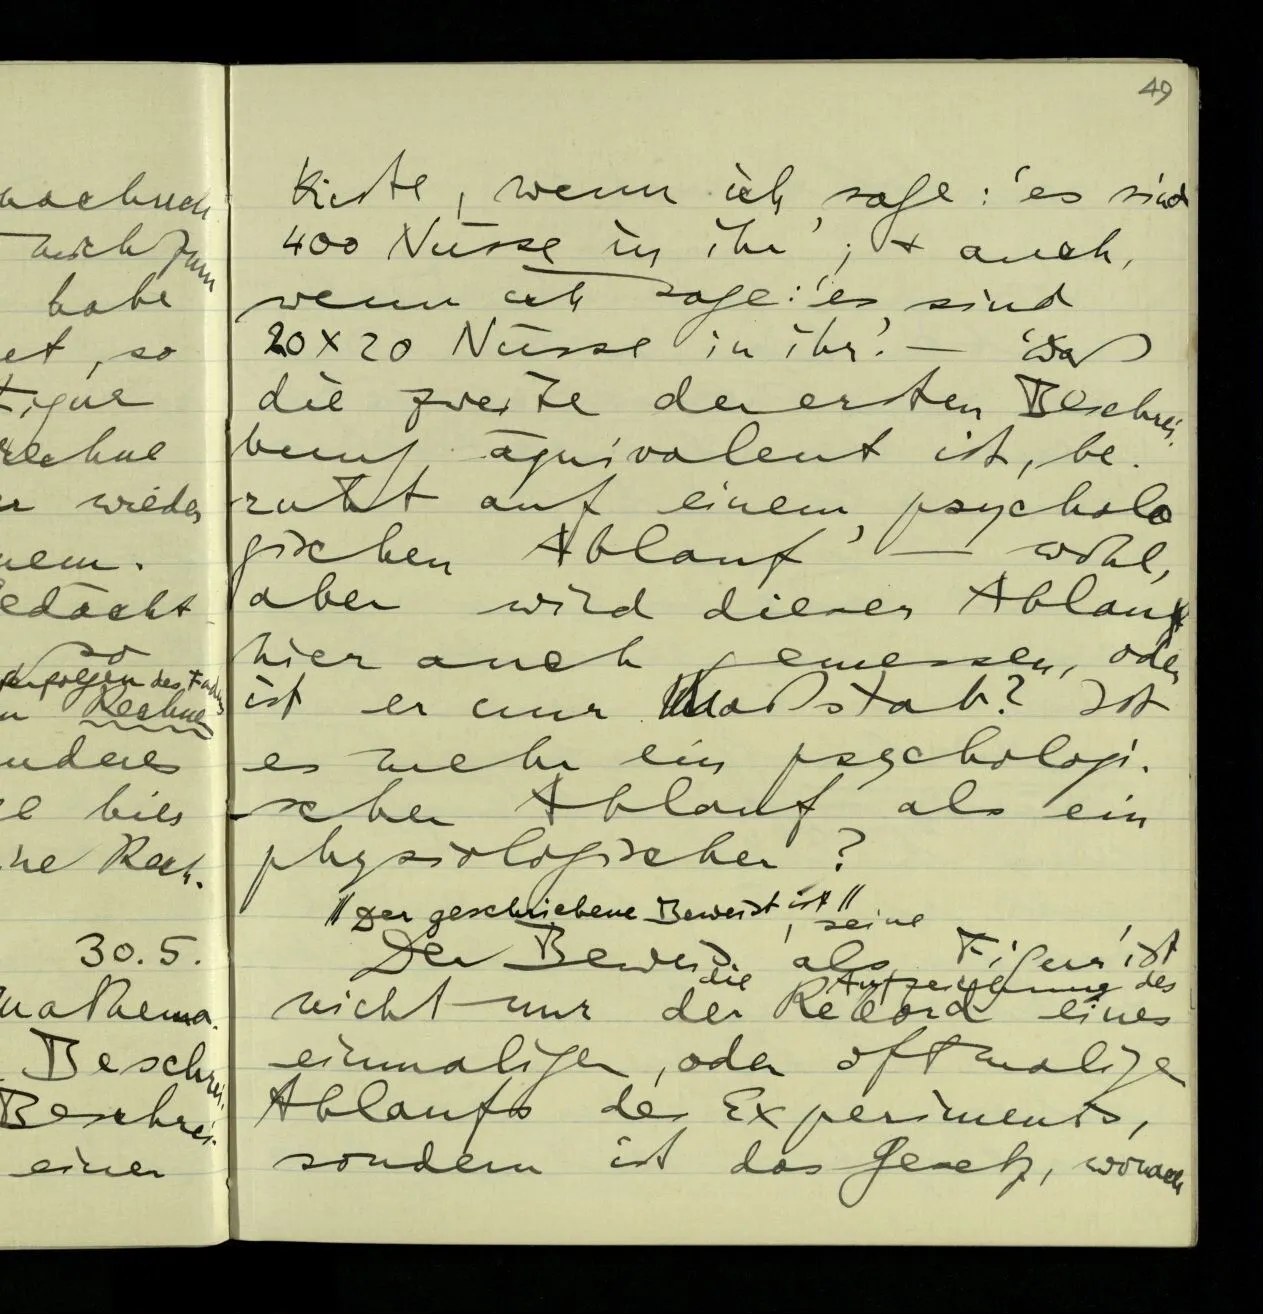 49
Kiste, wenn ich sage: 'es sind
400 Nüsse in ihr'; + auch,
wenn ich sage: 'es sind
20 × 20 Nüsse in ihr.' — 'Daß
die zweite der ersten Beschrei-
bung äquivalent ist, be-
ruht auf einem psycholo
gischen Ablauf' — wohl,
aber wird dieser Ablauf
hier auch gemessen, oder
ist er nur Maßstab? Ist
es mehr ein psychologi-
scher Ablauf als ein
physiologischer?
"Der geschriebene Beweis ist"
, seine
Der Beweis als Figur, ist
die Aufzeichnung des
nicht nur der Record eines
einmaligen, oder oftmalige
Ablaufs des Experiments,
sondern ist das Gesetz, wonach
mich zum
habe
et, so
Figur
rechne
wieder
nem.
edächt
so
verfolgen des
Rechne
nderes
hier
ne Rech-
30.5.
mathema-
Beschrei-
Beschrei-
einer